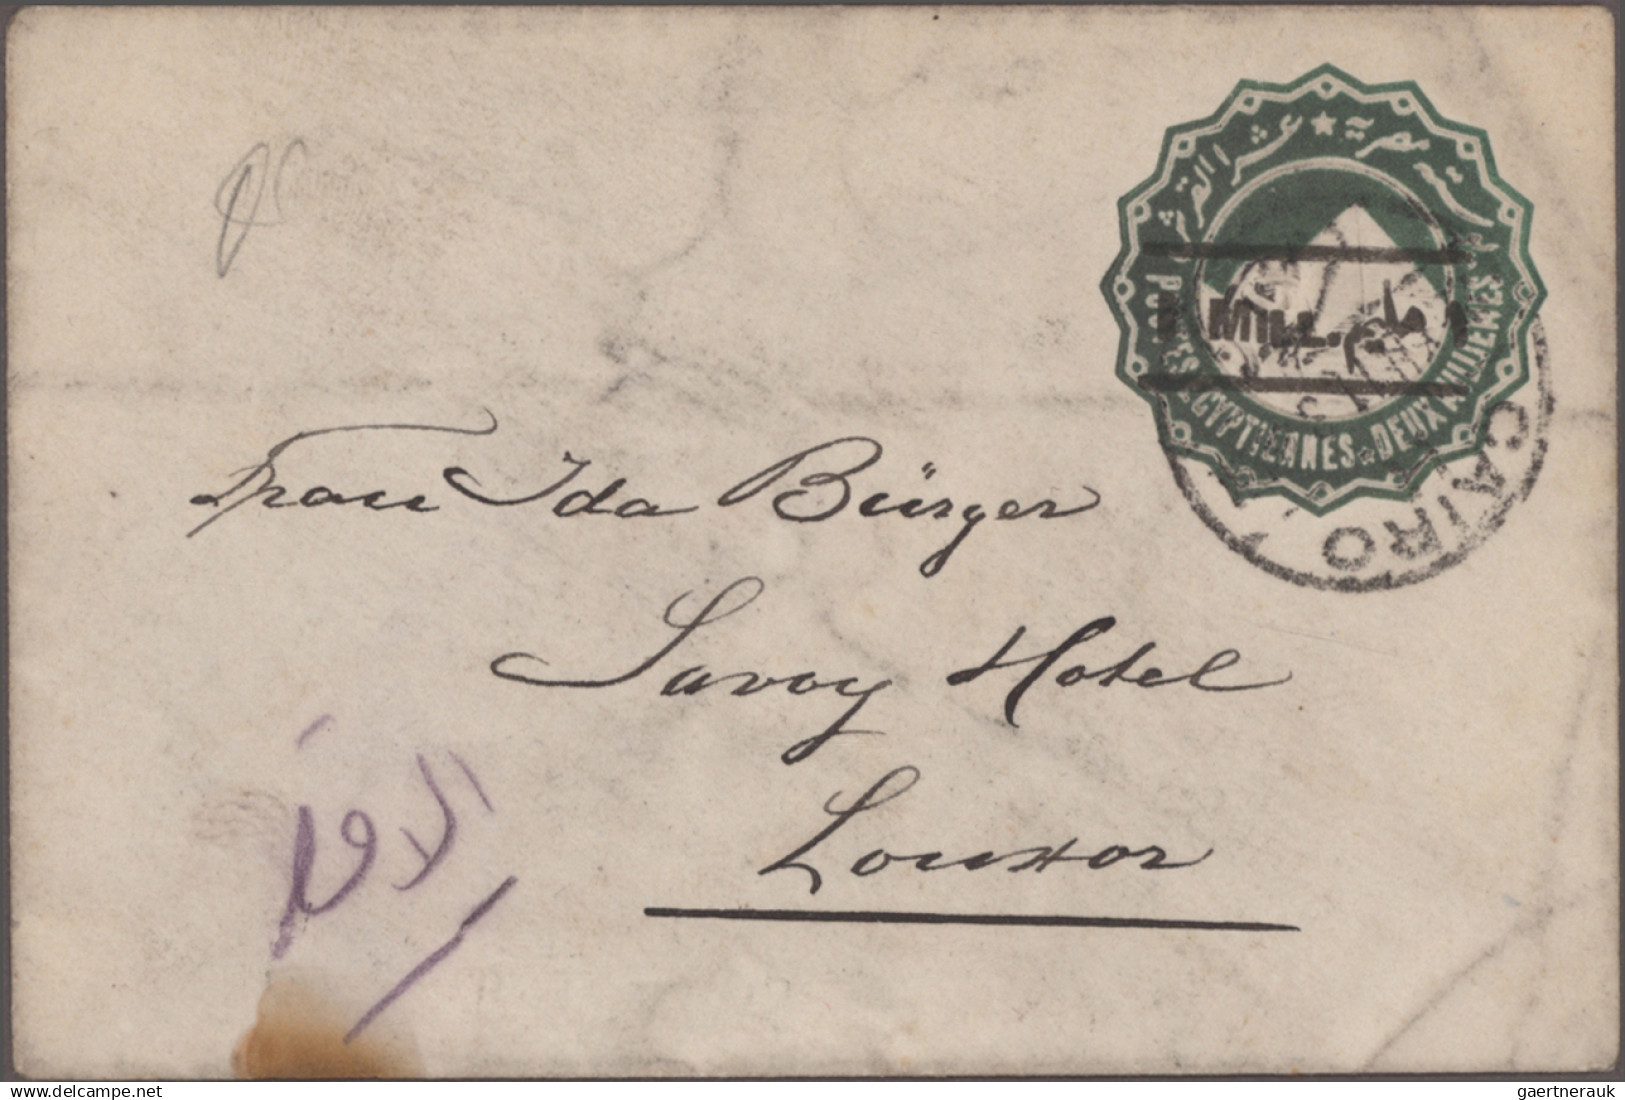 POSTES EGYPTIENNES ☆ DEUX MILLIEMES
1 MILL. ١ مليم
CAIRO
Frau Ida Bürger
Savoy Hotel
Louxor
الاقصر
www.delcampe.net
gaertnerauk